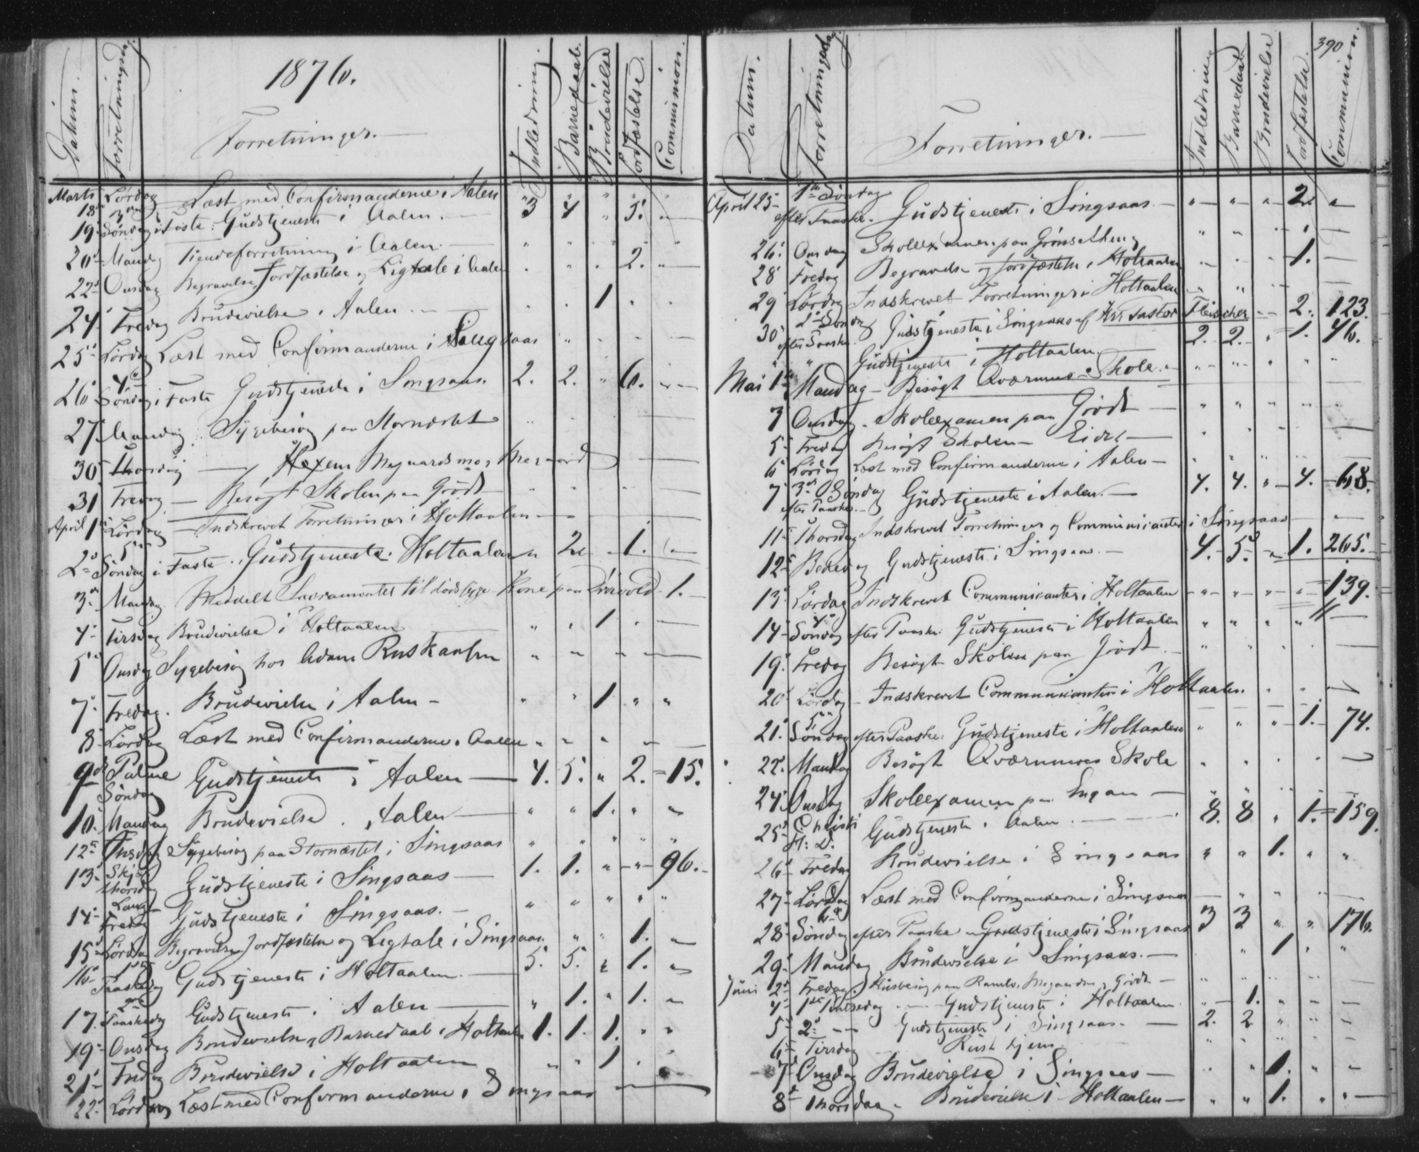 1876.
Datum. Forretningsdag. Forretninger. Indledning Barnedaab. Brudevielse Jordfæstelse. Communion.
Marts 18 Lørdag Læst med Confirmanderne i Aalen
19. Søndag i Faste. Gudstjeneste i Aalen. 3 4 " 5. "
20 Mandag i Aalen
22 Onsdag Begravelse, Jordfæstelse og Ligtale i Aalen 2.
24 Fredag Brudevielse i Aalen 1
25 Lørdag Læst med Confirmanderne i Singsaas
26 4de Søndag i Faste Gudstjeneste i Singsaas. 2. 2. " 6. "
27 Mandag Sygebesøg paa Stornæstet
30 Thorsdag
31 Fredag Besøgt Skolen paa Grødt
April 1 Lørdag Indskrevet Forretninger i Holtaalen
2 5te Søndag i Faste. Gudstjeneste. Holtaalen " 2 " 1. "
3. Mandag Meddelt Sacramentet til dødssyge Kone paa 1.
4 Tirsdag Brudevielse i Holtaalen " " 1 " "
5 Onsdag Sygebesøg hos Adam
7 Fredag. Brudevielse i Aalen " " 1 " "
8 Lørdag Læst med Confirmanderne i Aalen
9de Palme Søndag Gudstjeneste i Aalen 4. 5. " 2. 15.
10. Mandag Brudevielse. Aalen " " 1. " "
12 Onsdag Sygebesøg paa Stornæstet i Singsaas
13 Skjærthorsdag Gudstjeneste i Singsaas 1. 1. " " 96.
14 Langfredag Gudstjeneste i Singsaas.
15 Lørdag Begravelse, Jordfæstelse og Ligtale i Singsaas 1.
16 1ste Paaskedag Gudstjeneste i Holtaalen 5. 5. " 1. "
17. 2den Paaskedag Gudstjeneste i Aalen " 1. " 1. "
19 Onsdag Brudevielse og Barnedaab i Holtaalen 1. 1. 1. " "
21 Fredag Brudevielse i Holtaalen 1
22. Lørdag Læst med Confirmanderne i Singsaas
390
Datum. Forretningsdag Forretninger. Indledning Barnedaab Brudevielse Jordfæstelse Communion.
April 23 1ste Søndag efter Paaske. Gudstjeneste i Singsaas " " " 2. "
26 Onsdag Skoleexamen paa
28 Fredag Begravelse og Jordfæstelse i Holtaalen 1.
29 Lørdag Indskrevet Forretninger i Holtaalen
30 2den Søndag efter Paaske Gudstjeneste i Singsaas af Hr. Pastor Fleischer 2. 123.
" Gudstjeneste i Holtaalen 2. 2. " 1. 46.
Mai 1 Mandag Besøgt Qværnnes Skole
3 Onsdag Skoleexamen paa Grødt
5 Fredag Besøgt Skolen
6 Lørdag Læst med Confirmanderne i Aalen
7 3die Søndag efter Paaske Gudstjeneste i Aalen. 4. 4. " 4. 68.
11 Thorsdag Indskrevet Forretninger og Communicanter i Singsaas
12 Bededag Gudstjeneste i Singsaas 4. 5. " 1. 265.
13 Lørdag Indskrevet Communicanter i Holtaalen
14 4de Søndag efter Paaske Gudstjeneste i Holtaalen 139.
19 Fredag Besøgt Skolen paa Grødt
20 Lørdag Indskrevet Communicanter i Holtaalen
21 5te Søndag efter Paaske. Gudstjeneste i Holtaalen 1. 74.
22 Mandag Besøgt Qværnnes Skole
24 Onsdag Skoleexamen paa
25 Christi H. D. Gudstjeneste. Aalen 8. 8 " 1. 159.
26 Fredag Brudevielse i Singsaas " " 1. " "
27 Lørdag Læst med Confirmanderne i Singsaas
28 6te Søndag efter Paaske Gudstjeneste i Singsaas 3 3 " " 176.
29 Mandag Brudevielse i Singsaas. 1
Juni 2 Fredag
4 1ste Pintsedag Gudstjeneste i Holtaalen 1.
5 2. Gudstjeneste i Singsaas. 2. 2
6 Tirsdag
7 Onsdag Brudevielse i Singsaas 1.
8 Thorsdag Brudevielse i Holtaalen " " 1. " "